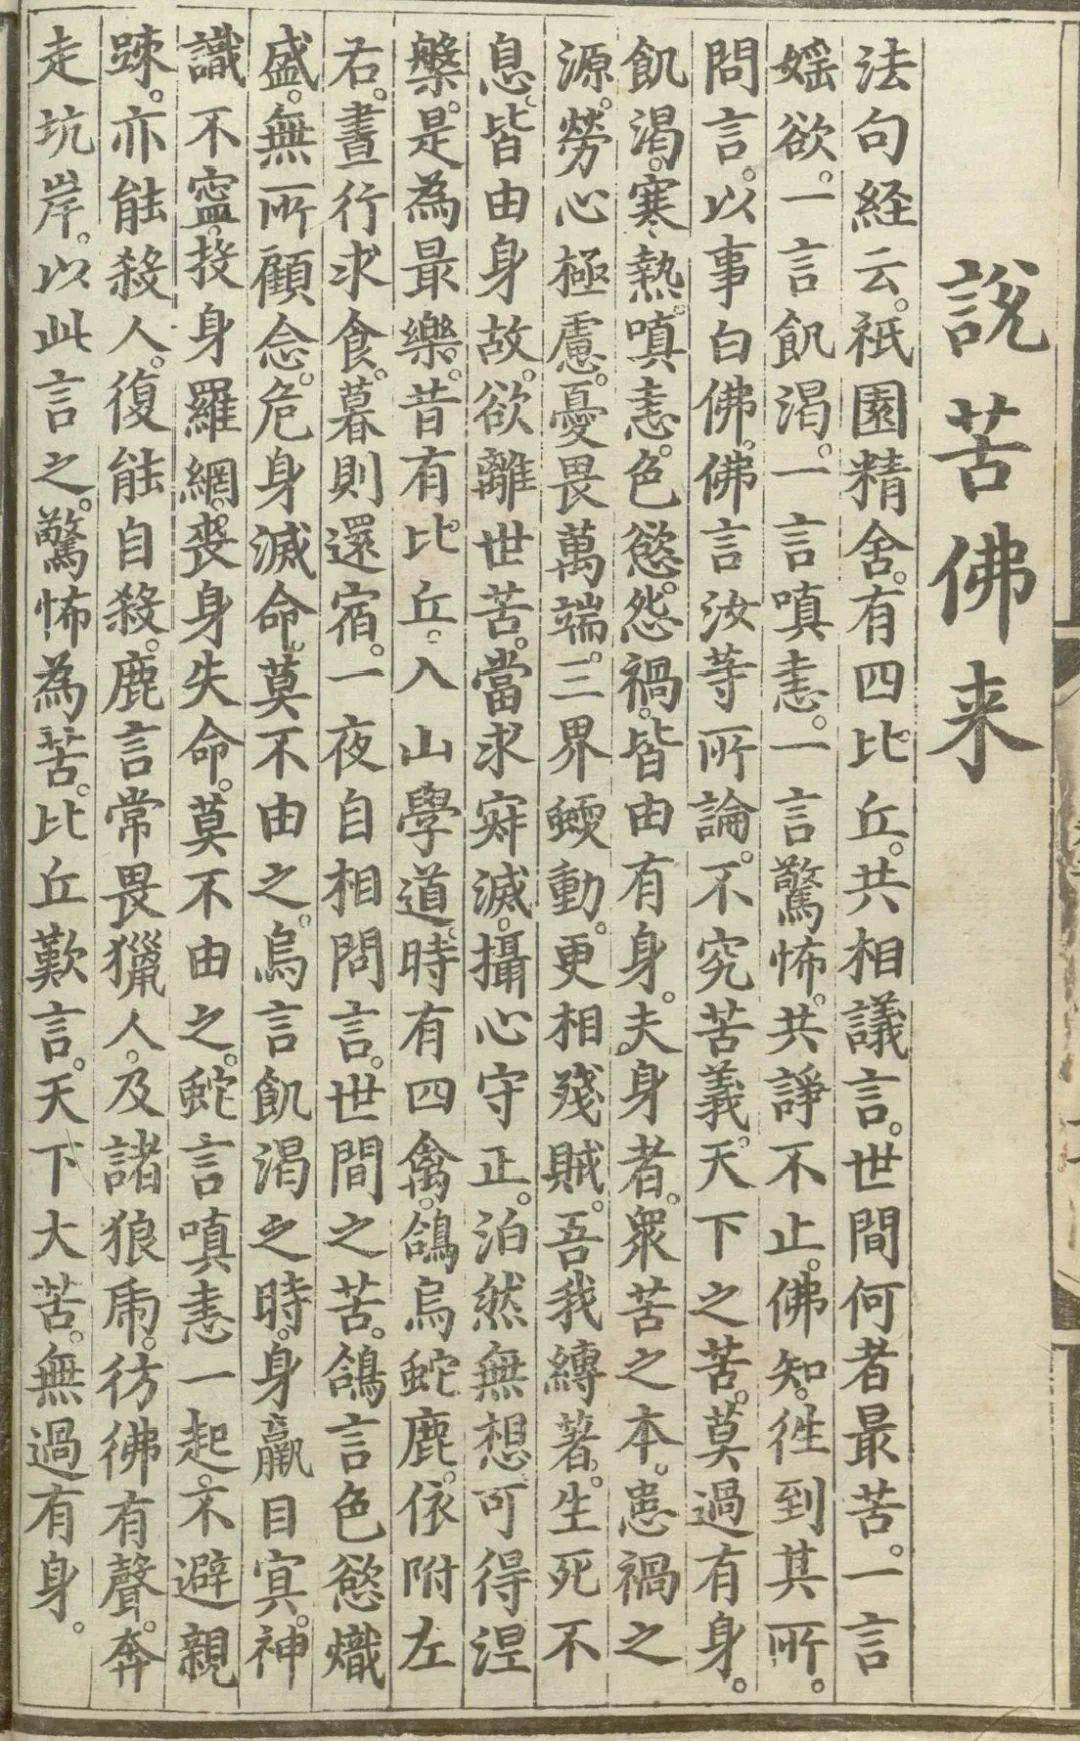 說苦佛来
法句経云。祇園精舍。有四比丘。共相議言。世間何者最苦。一言
婬欲。一言飢渴。一言嗔恚。一言驚怖。共諍不止。佛知。徃到其所。
問言。以事白佛。佛言汝等所論。不究苦義。天下之苦。莫過有身。
飢渴。寒熱。嗔恚。色慾。怨禍。皆由有身。夫身者。衆苦之本。患禍之
源。勞心極慮。憂畏萬端。三界蠕動。更相殘賊。吾我縛著。生死不
息。皆由身故。欲離世苦。當求寂滅。攝心守正。泊然無想。可得涅
槃。是為最樂。昔有比丘。入山學道。時有四禽。鴿烏蛇鹿。依附左
右。晝行求食。暮則還宿。一夜自相問言。世間之苦。鴿言色慾熾
盛。無所顧念。危身滅命。莫不由之。烏言飢渴之時。身羸目冥。神
識不寧。投身羅網。喪身失命。莫不由之。蛇言嗔恚一起。不避親
踈。亦能殺人。復能自殺。鹿言常畏獵人。及諸狼虎。彷彿有聲。奔
走坑岸。以此言之。驚怖為苦。比丘歎言。天下大苦。無過有身。